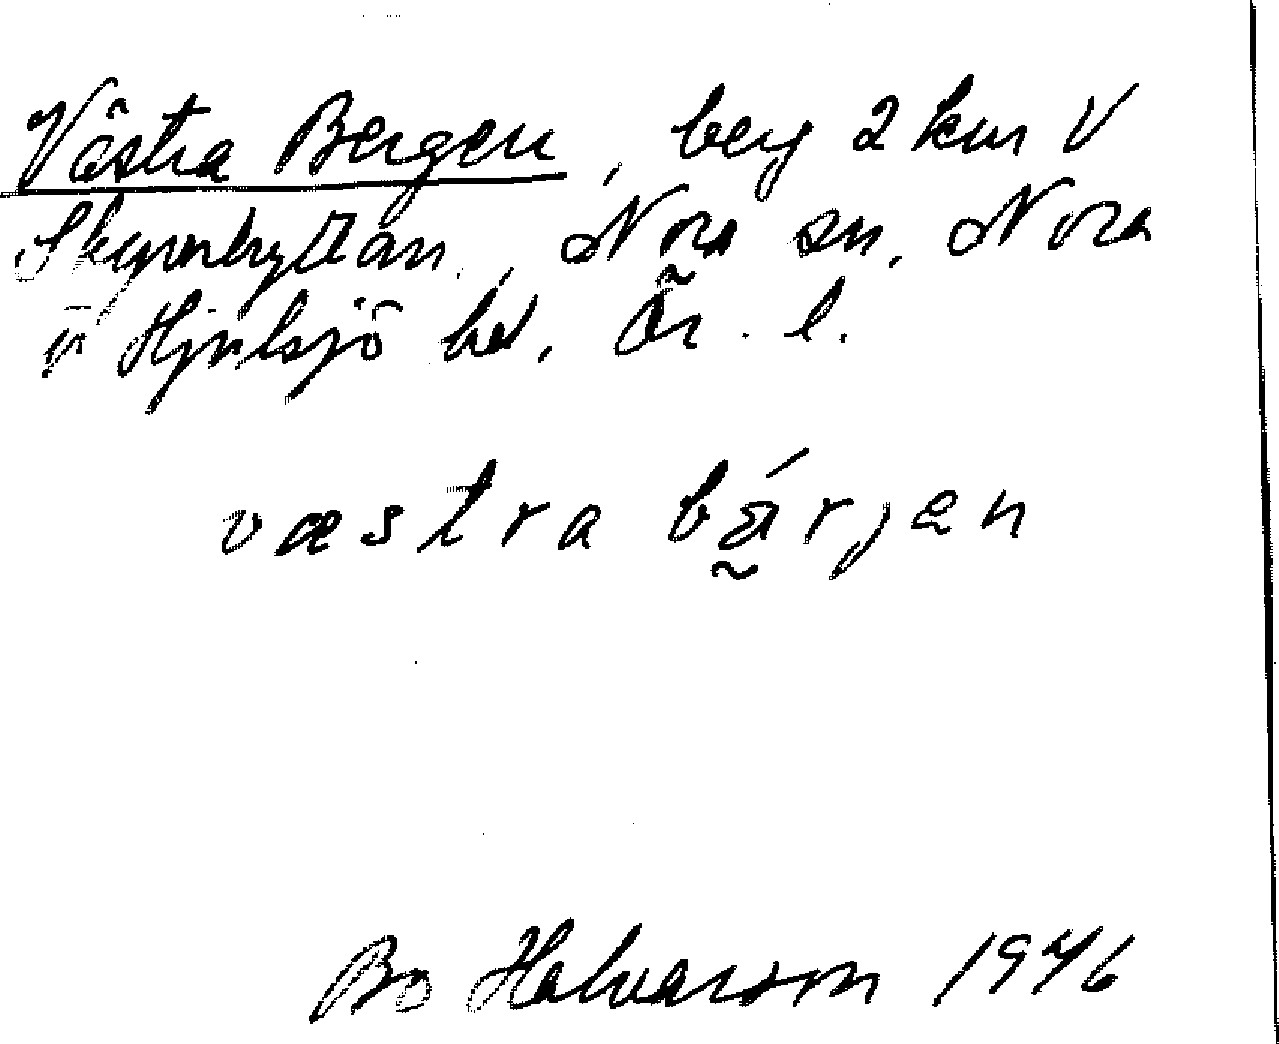 Västra Bergen, berg 2 km V
Skyrhyttan, Nora sn, Nora
o Hjulsjö hd, Ör. l.
væstra bä́rjen
Bo Halvarson 1946